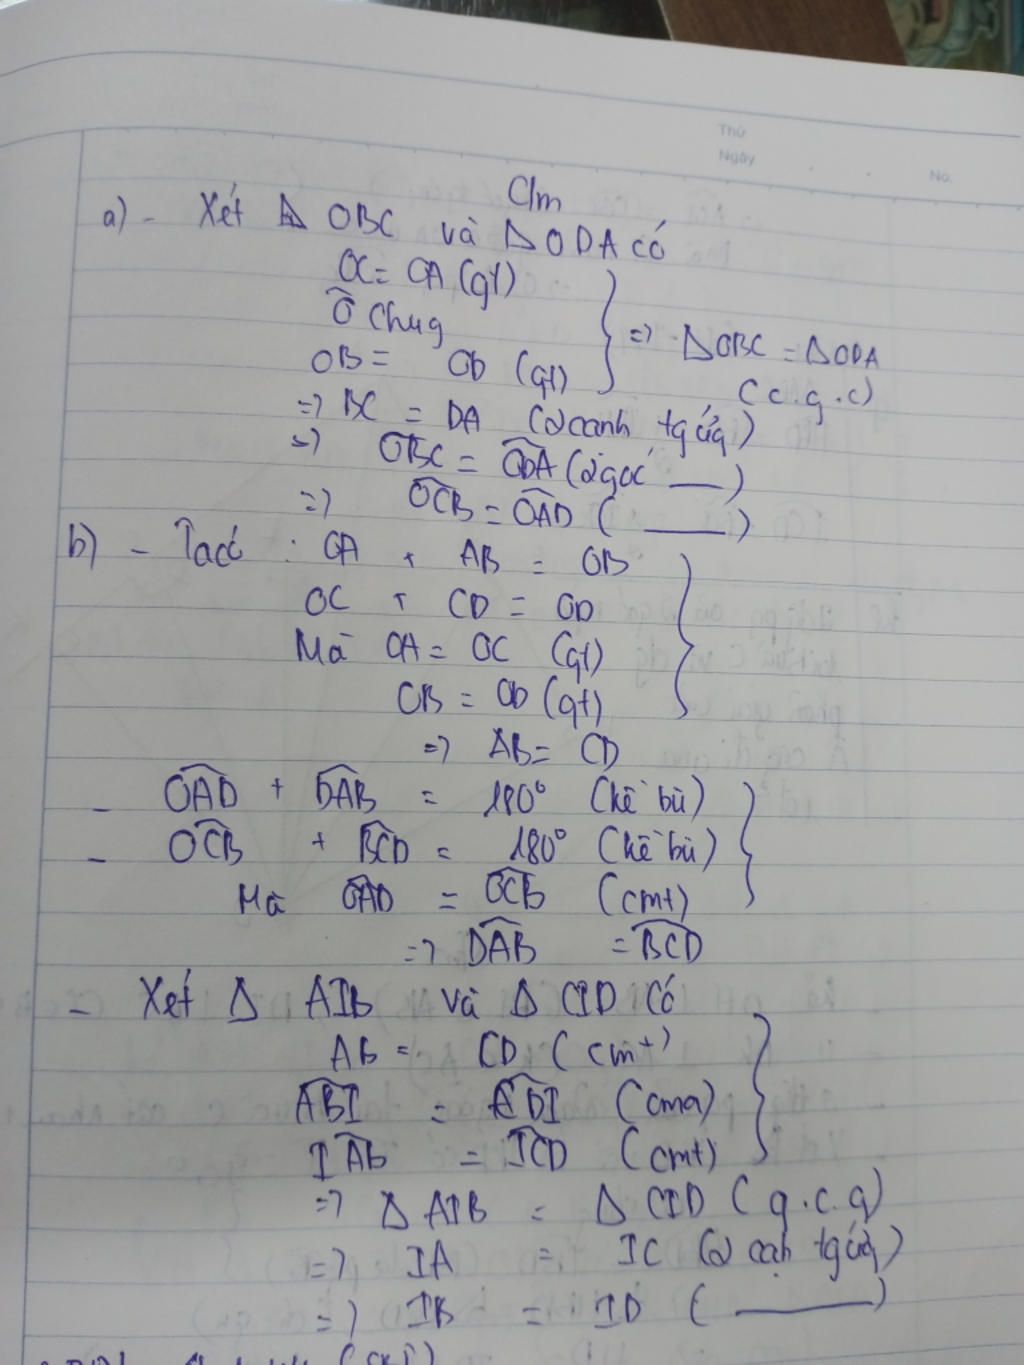 Thứ
Ngày
No.
C/m
a) - Xét Δ OBC và Δ ODA có
OC = OA (gt)
Ô chug
OB = OD (gt)
=> ΔOBC = ΔODA
(c.g.c)
=> BC = DA (2 cạnh tg ứg)
=> OBC = ODA (2 góc ___)
=> OCB = OAD ( ___ )
b) - Ta có : OA + AB = OB
OC + CD = OD
Mà OA = OC (gt)
OB = OD (gt)
=> AB = CD
- OAD + DAB = 180° (kề bù)
- OCB + BCD = 180° (kề bù)
Mà OAD = OCB (cmt)
=> DAB = BCD
- Xét Δ AIB và Δ CID có
AB = CD (cmt)
ABI = CDI (cma)
IAB = ICD (cmt)
=> Δ AIB = Δ CID (g.c.g)
=> IA = IC (2 cạh tg ứg)
=> IB = ID ( ___ )